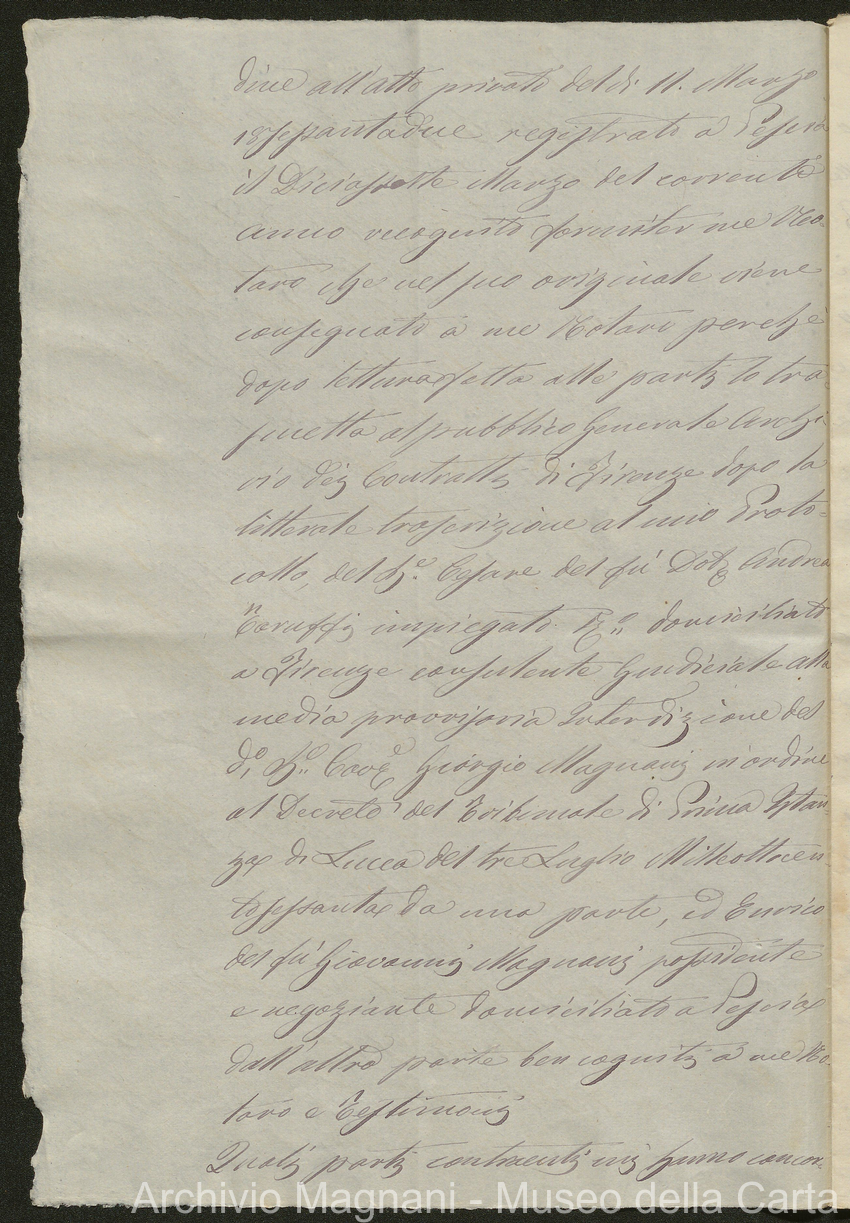 dine all'atto privato del dì 11. Marzo
18sessantadue registrato a Pescia
il Diciassette Marzo del corrente
anno recognito forniter me No-
taro che nel suo originale viene
consegnato a me Notaro perchè
dopo lettura fatta alle parti lo tra-
smetta al pubblico Generale Archi-
vio dei Contratti di Firenze dopo la
litterale trascrizione al mio Proto-
collo, del Sig.e Cesare del fù Dott. Andrea
Taruffi impiegato R.o domiciliato
a Firenze consulente Giudiciale alla
media provvisoria Interdizione del
d.o Sig.e Cav.e Giorgio Magnani in ordine
al Decreto del Tribunale di Prima Istan-
za di Lucca del tre Luglio Milleottocen-
tosessanta da una parte, ed Enrico
del fù Giovanni Magnani possidente
e negoziante domiciliato a Pescia
dall'altra parte ben cogniti a me No-
taro e Testimoni
Quali parti contraenti mi hanno concor-
Archivio Magnani - Museo della Carta